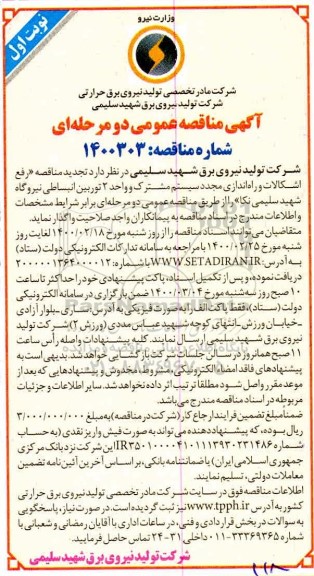 نوبت اول
وزارت نیرو
شرکت مادر تخصصی تولید نیروی برق حرارتی
شرکت تولید نیروی برق شهید سلیمی
آگهی مناقصه عمومی دو مرحله‌ای
شماره مناقصه: ۱۴۰۰۳۰۳
شرکت تولید نیروی برق شهید سلیمی در نظر دارد تجدید مناقصه «رفع
اشکالات و راه‌اندازی مجدد سیستم مشترک و واحد ۲ توربین انبساطی نیروگاه
شهید سلیمی نکا» را از طریق مناقصه عمومی دو مرحله‌ای برابر شرایط مشخصات
و اطلاعات مندرج در اسناد مناقصه به پیمانکاران واجد صلاحیت واگذار نماید.
متقاضیان می‌توانند اسناد مناقصه را از روز شنبه مورخ ۱۴۰۰/۰۲/۱۸ لغایت روز
شنبه مورخ ۱۴۰۰/۰۲/۲۵ با مراجعه به سامانه تدارکات الکترونیکی دولت (ستاد)
به آدرس: WWW.SETADIRAN.IR با شماره:
دریافت نموده، و پس از تکمیل اسناد، پاکت پیشنهادی خود را حداکثر تا ساعت
۱۰ صبح روز سه‌شنبه مورخ ۱۴۰۰/۰۳/۰۴ ضمن بارگزاری در سامانه الکترونیکی
دولت (ستاد)، فقط پاکت الف را به صورت فیزیکی به آدرس ساری ـ بلوار آزادی
ـ خیابان ورزش ـ انتهای کوچه شهید عباس مددی (ورزش ۲) شرکت تولید
نیروی برق شهید سلیمی ارسال نمایند. کلیه پیشنهادات واصله رأس ساعت
۱۱ صبح همان روز در سالن جلسات شرکت بازگشایی خواهد شد. بدیهی است به
پیشنهادهای فاقد امضا الکترونیکی، مشروط، مخدوش و پیشنهادهایی که بعد از
موعد مقرر واصل شود مطلقا ترتیب اثر داده نخواهد شد. سایر اطلاعات و جزئیات
مربوطه در اسناد مناقصه مندرج می‌باشد.
ضمنا مبلغ تضمین فرایند ارجاع کار (شرکت در مناقصه) به مبلغ ۳/۰۰۰/۰۰۰/۰۰۰
ریال بوده، که پیشنهاددهنده می‌تواند به صورت فیش واریز نقدی (به حساب
شماره این شرکت نزد بانک مرکزی
جمهوری اسلامی ایران) یا ضمانتنامه بانکی، بر اساس آخرین آئین‌نامه تضمین
معاملات دولتی، تسلیم نمایند.
اطلاعات مناقصه فوق در سایت شرکت مادر تخصصی تولید نیروی برق حرارتی
کشور به آدرس www.tpph.ir نیز ثبت گردیده است. در صورت نیاز، پاسخگویی
به سوالات در بخش قراردادی و فنی، در ساعات اداری با آقایان رمضانی و شعبانی با
شماره ۳۳۳۶۹۳۶۵-۰۱۱ داخلی ۳۱-۲۴ تماس حاصل فرمایید.
شرکت تولید نیروی برق شهید سلیمی